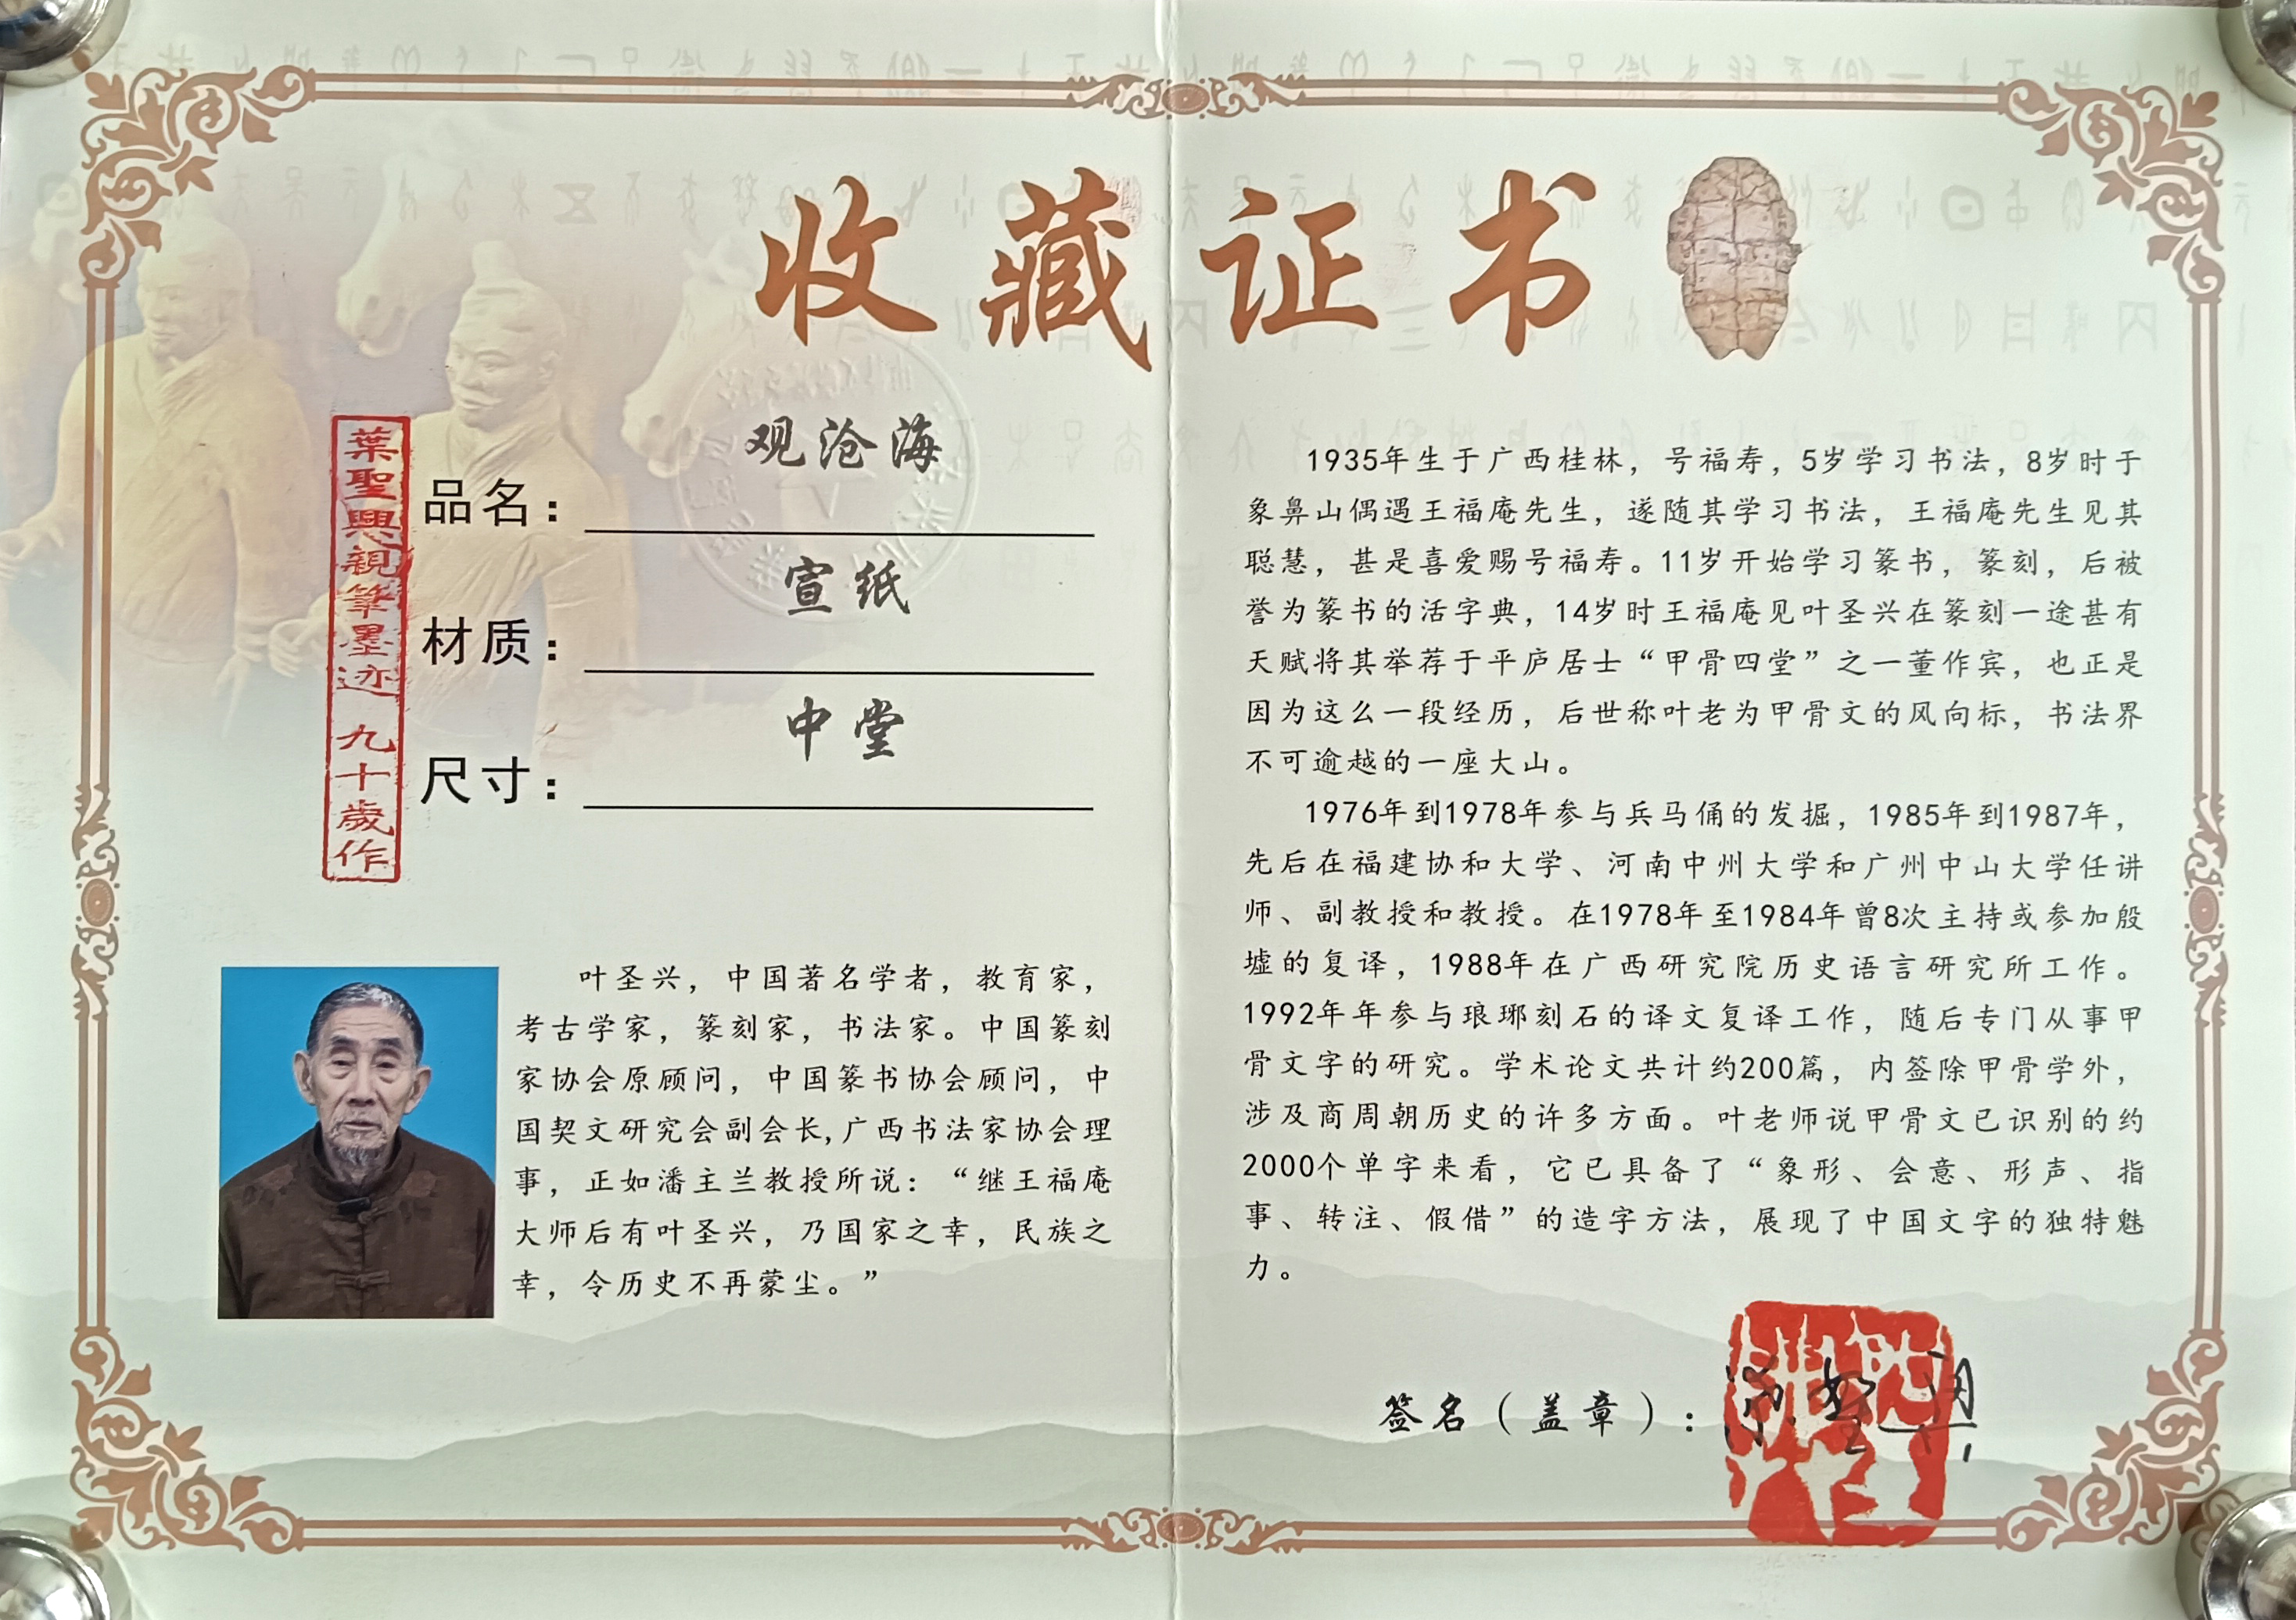 收藏证书
葉聖興親筆墨迹 九十歲作
品名：观沧海
材质：宣纸
尺寸：中堂
叶圣兴，中国著名学者，教育家，
考古学家，篆刻家，书法家。中国篆刻
家协会原顾问，中国篆书协会顾问，中
国契文研究会副会长,广西书法家协会理
事，正如潘主兰教授所说：“继王福庵
大师后有叶圣兴，乃国家之幸，民族之
幸，令历史不再蒙尘。”
1935年生于广西桂林，号福寿，5岁学习书法，8岁时于
象鼻山偶遇王福庵先生，遂随其学习书法，王福庵先生见其
聪慧，甚是喜爱赐号福寿。11岁开始学习篆书，篆刻，后被
誉为篆书的活字典，14岁时王福庵见叶圣兴在篆刻一途甚有
天赋将其举荐于平庐居士“甲骨四堂”之一董作宾，也正是
因为这么一段经历，后世称叶老为甲骨文的风向标，书法界
不可逾越的一座大山。
1976年到1978年参与兵马俑的发掘，1985年到1987年，
先后在福建协和大学、河南中州大学和广州中山大学任讲
师、副教授和教授。在1978年至1984年曾8次主持或参加殷
墟的复译，1988年在广西研究院历史语言研究所工作。
1992年年参与琅琊刻石的译文复译工作，随后专门从事甲
骨文字的研究。学术论文共计约200篇，内签除甲骨学外，
涉及商周朝历史的许多方面。叶老师说甲骨文已识别的约
2000个单字来看，它已具备了“象形、会意、形声、指
事、转注、假借”的造字方法，展现了中国文字的独特魅
力。
签名（盖章）：